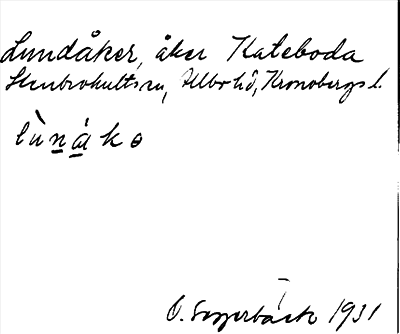 Lundåker, åker Kateboda
Stenbrohults sn, Allbo hd, Kronobergs l.
lùnåko
O. Seyerbäck 1931